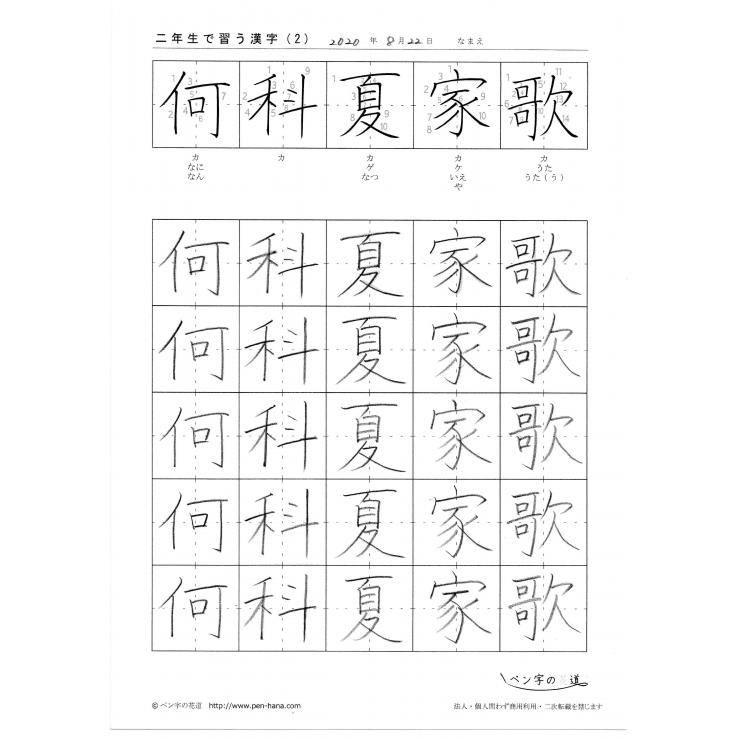 二年生で習う漢字(2) 2020年 8月22日 なまえ
何 科 夏 家 歌
カ カ カ カ カ
なに ゲ ケ うた
なん なつ いえ うた(う)
や
何 科 夏 家 歌
何 科 夏 家 歌
何 科 夏 家 歌
何 科 夏 家 歌
何 科 夏 家 歌
ペン字の花道
© ペン字の花道 http://www.pen-hana.com 法人・個人問わず商用利用・二次転載を禁じます